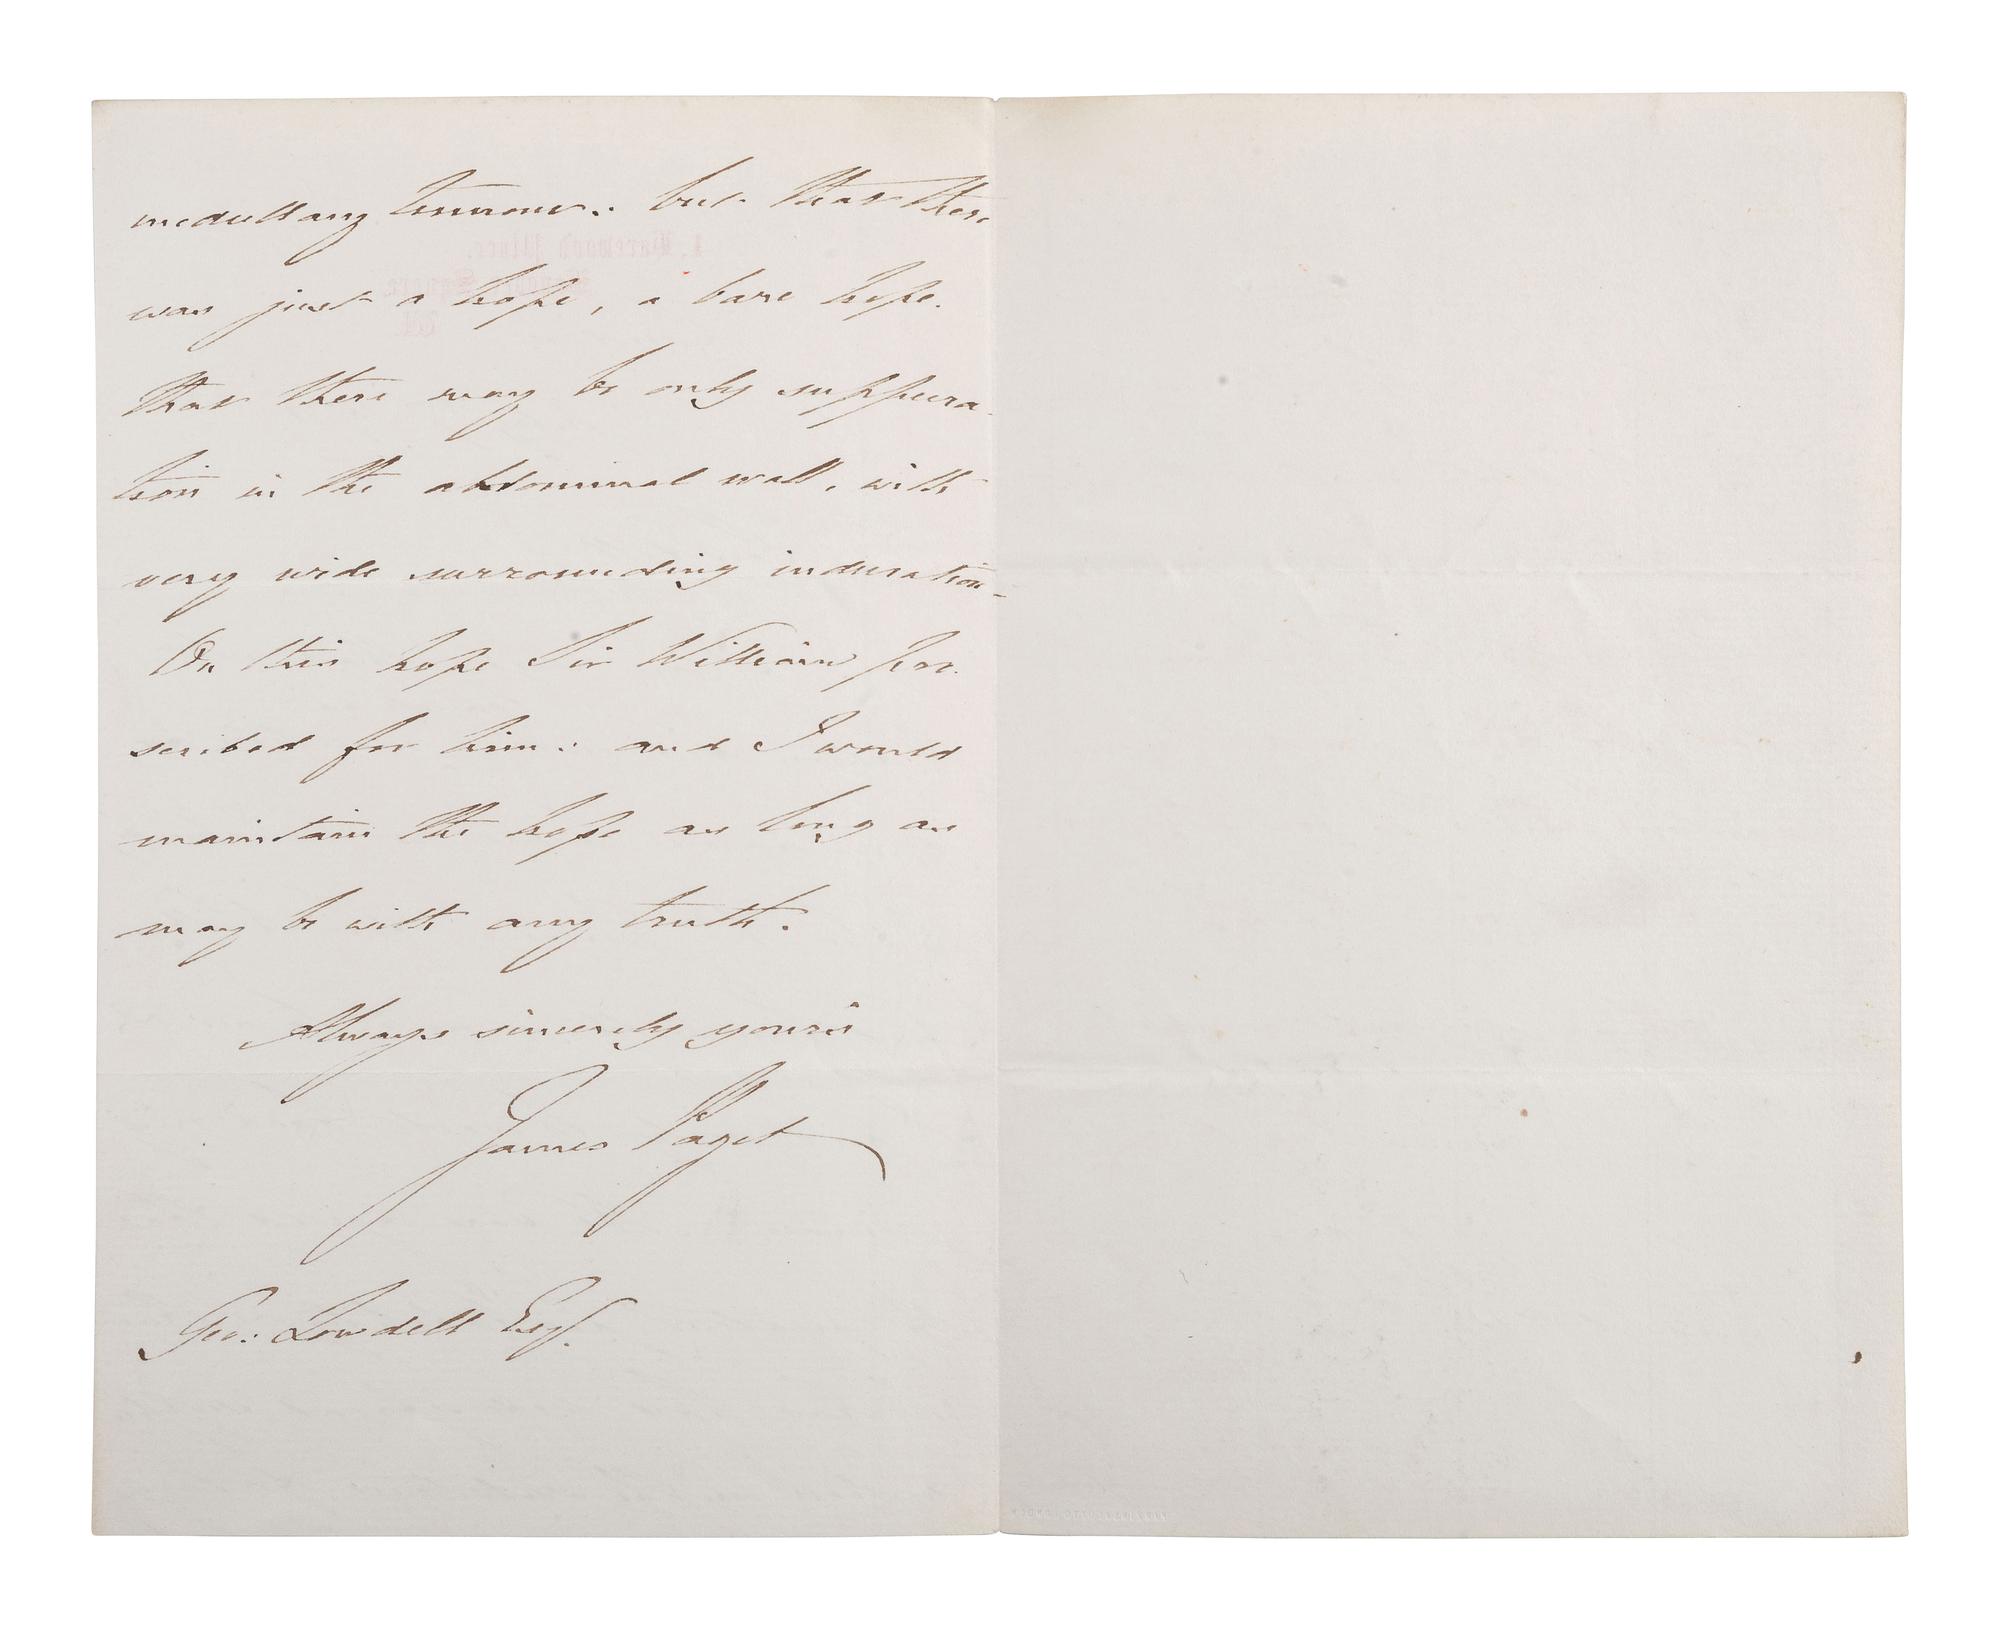 medullary tumour: but that there
was just a hope, a bare hope,
that there may be only suppura-
tion in the abdominal wall, with
very wide surrounding induration.
On this hope Sir William pre-
scribed for him: and I would
maintain the hope as long as
may be with any truth.
Always sincerely yours
James Paget
Geo: Lowdell Esq.